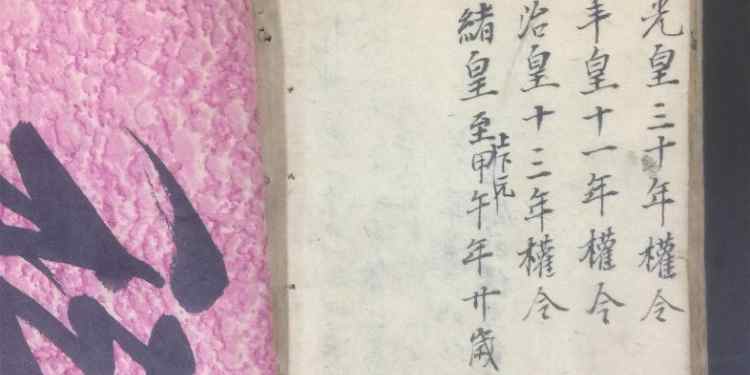 光皇三十年權令
丰皇十一年權令
治皇十三年權令
緒皇至甲午年廿歲
上下元